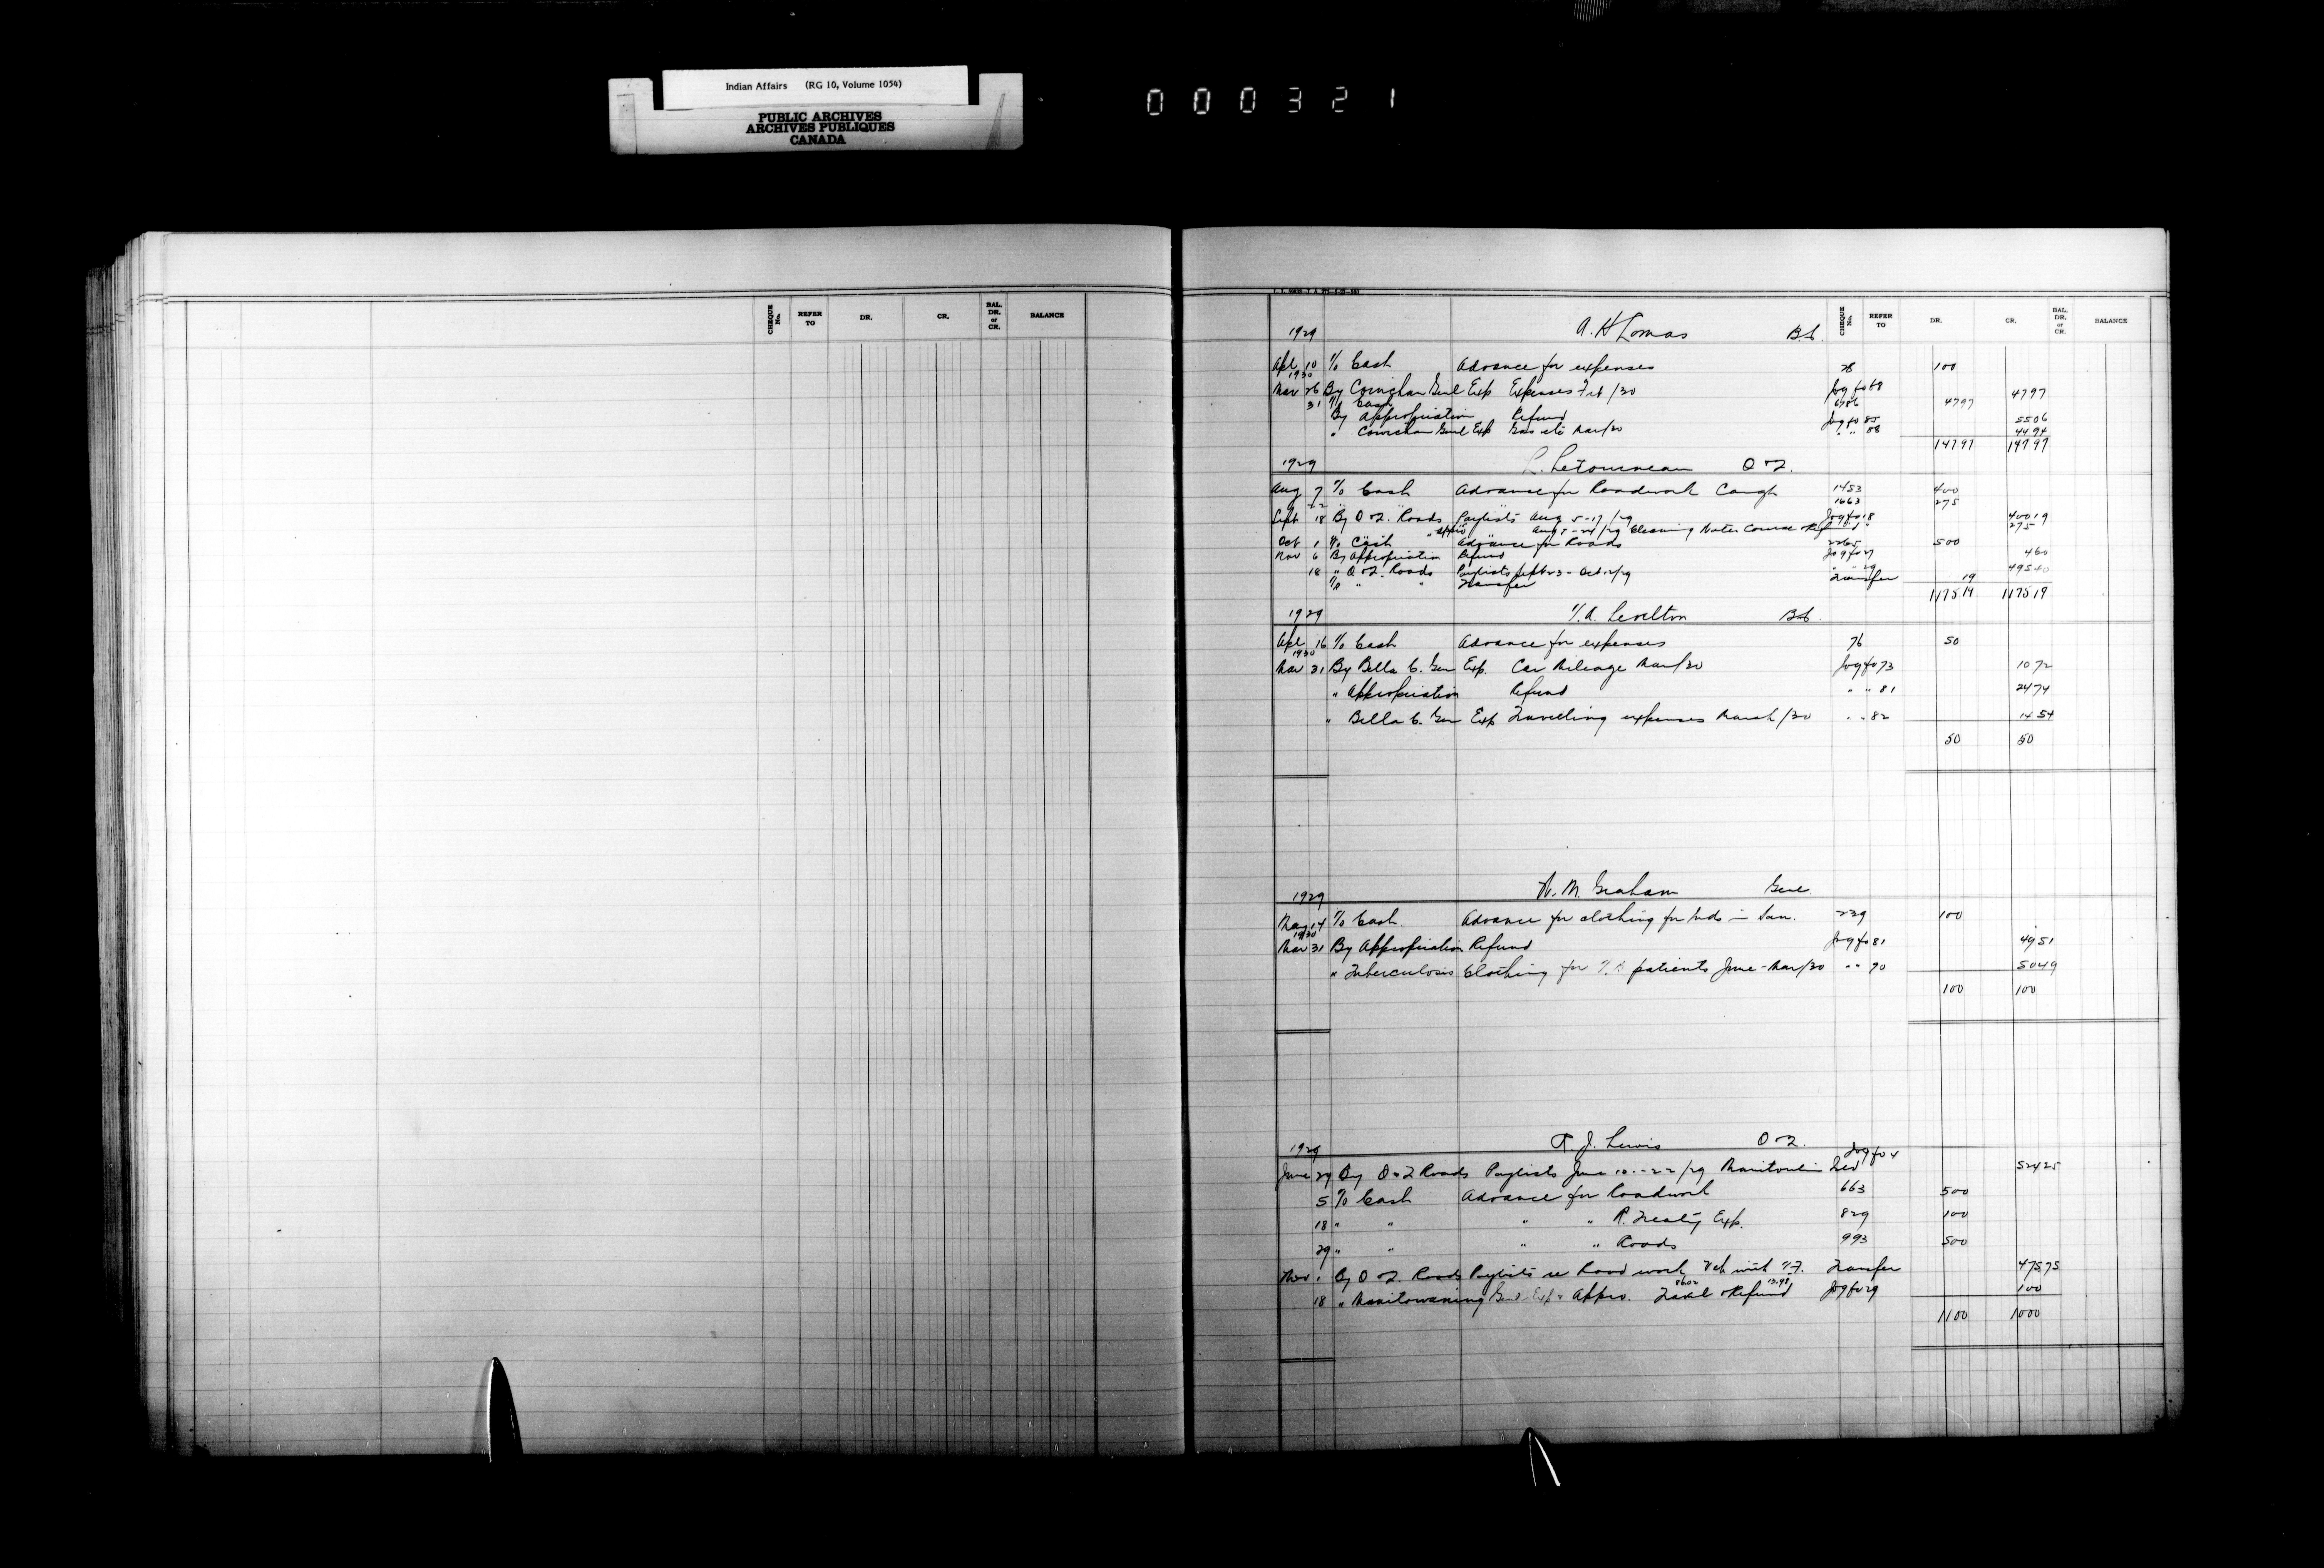 Indian Affairs (RG 10, Volume 1054)
PUBLIC ARCHIVES
ARCHIVES PUBLIQUES
CANADA
000321
CHEQUE No. REFER TO DR. CR. BAL. DR. or CR. BALANCE
CHEQUE No. REFER TO DR. CR. BAL. DR. or CR. BALANCE
1929 A. H Lomas B.C.
Apl 10 To Cash Advance for expenses 78 100
1930
Mar 26 By Cowichan Genl Exp Expenses Feb/30 Jog fo 68 4797
31 To Cash 6786 4797
By Appropriation Refund Jog fo 85 5506
" Cowichan Genl Exp Gas etc Mar/30 " " 88 4494
14797 14797
1929 L. Letourneau O & Q.
Aug 7 To Cash Advance for Roadwork Caugh 1453 400
22 " " 1663 275
Sept 18 By O & Q. Roads Paylists Aug 5-17/29 Jog fo 18 40019
" Appro Aug 5-24/29 Cleaning Water Course & Refund " 275
Oct 1 To Cash Advance for Roads 2265 500
Nov 6 By Appropriation Refund Jog fo 27 460
18 " O & Q. Roads Paylists Sept 23 - Oct 12/29 " " 29 49540
To " " Transfer Transfer 19
117519 117519
1929 Levelton B.C.
Apl 16 To Cash Advance for expenses 76 50
1930
Mar 31 By Bella C. Gen Exp. Car Mileage Mar/30 Jog fo 73 1072
" Appropriation Refund " " 81 2474
" Bella C. Gen Exp Travelling expenses March/30 " " 82 1454
50 50
1929 W. M. Graham Genl
May 14 To Cash Advance for clothing for Inds in San. 239 100
1930
Mar 31 By Appropriation Refund Jog fo 81 4951
" Tuberculosis Clothing for T.B. patients June - Mar/30 " " 90 5049
100 100
1929 R. J. Lewis O & Q.
June 29 By O & Q Roads Paylists June 10 - 22/29 Manitoulin Isld Jog fo 4 52425
5 To Cash Advance for Roadwork 663 500
18 " " " " R. Treaty Exp. 829 100
29 " " " " Roads 993 500
Nov 1 By O & Q. Roads Paylists re Road work Transfer 47575
18 " Manitowaning Genl Exp & Appro. Travl & Refund Jog fo 29 100
1100 1000